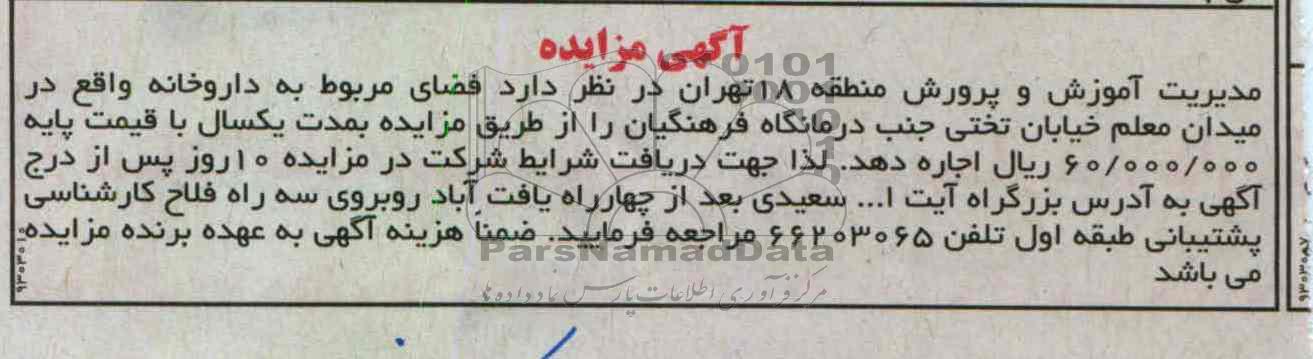 آگهی مزایده
مدیریت آموزش و پرورش منطقه ۱۸تهران در نظر دارد فضای مربوط به داروخانه واقع در
میدان معلم خیابان تختی جنب درمانگاه فرهنگیان را از طریق مزایده بمدت یکسال با قیمت پایه
۶۰/۰۰۰/۰۰۰ ریال اجاره دهد. لذا جهت دریافت شرایط شرکت در مزایده ۱۰روز پس از درج
آگهی به آدرس بزرگراه آیت ا... سعیدی بعد از چهارراه یافت آباد روبروی سه راه فلاح کارشناسی
پشتیبانی طبقه اول تلفن ۶۶۲۰۳۰۶۵ مراجعه فرمایید. ضمناً هزینه آگهی به عهده برنده مزایده
می باشد
ParsNamadData
مرکز فرآوری اطلاعات پارس نماد داده ها
۹۳۰۳۰۱۰
۹۳۰۳۰۸۷